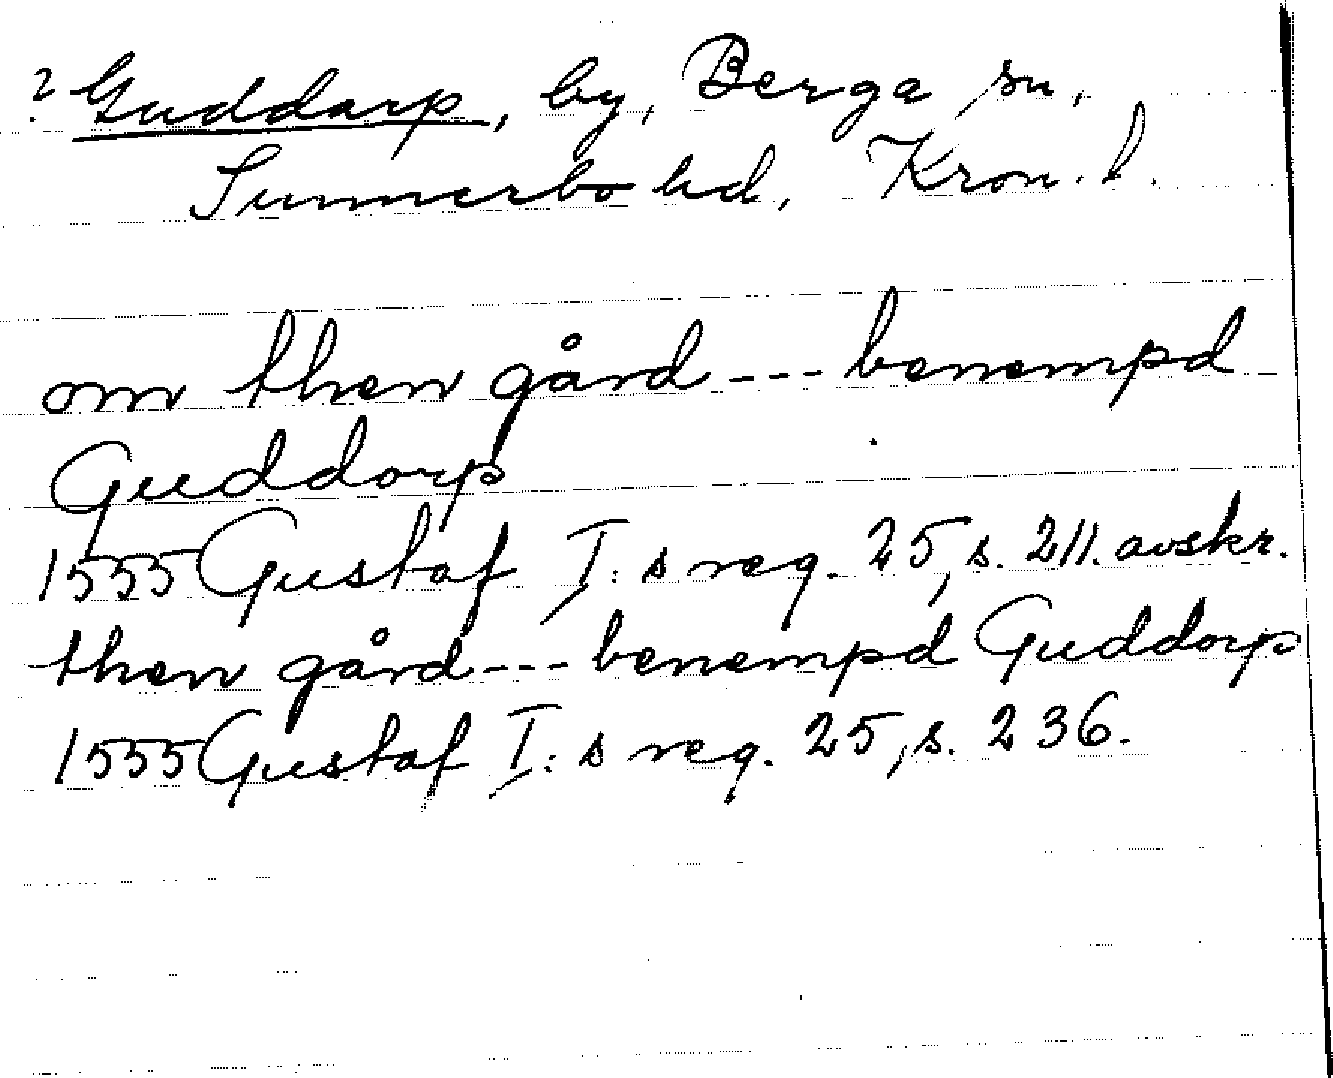 ? Guddarp, by, Berga sn,
Sunnerbo hd, Kron. l.
om then gård --- benempd
Guddorp
1555 Gustaf I:s reg. 25, s. 211. avskr.
then gård --- benempd Guddorp
1555 Gustaf I:s reg. 25, s. 236.